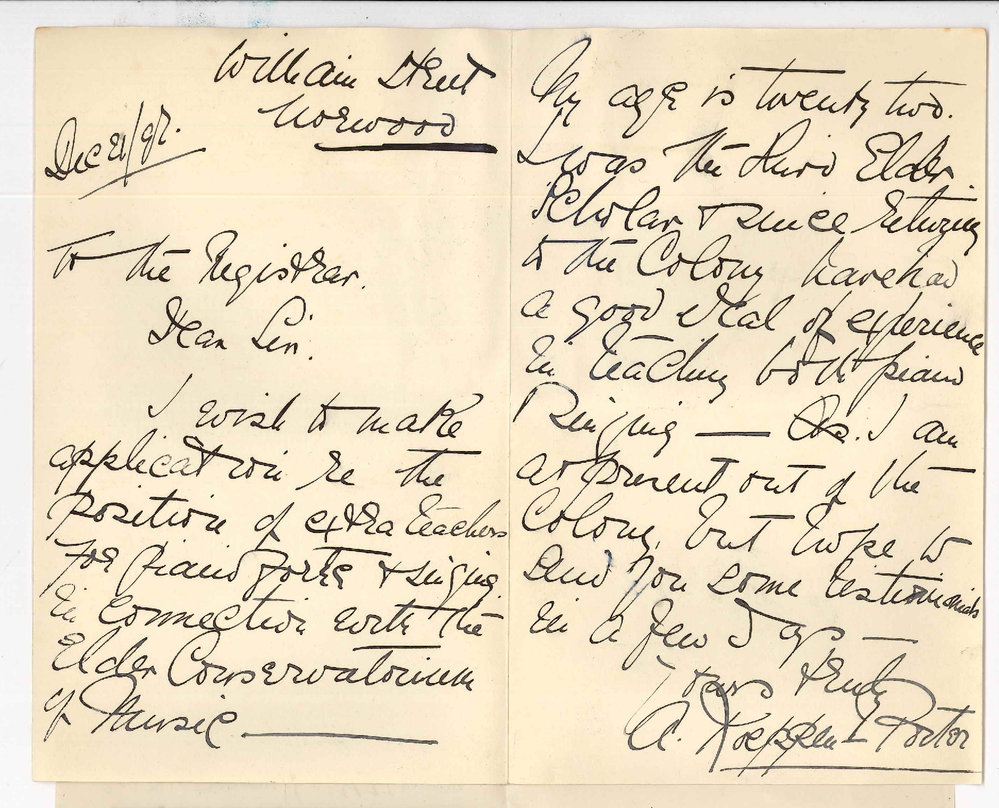 William Street
Norwood
Dec 21/97.
To the Registrar.
Dear Sir.
I wish to make
application re the
position of extra teachers
for pianoforte & singing
in connection with the
Elder Conservatorium
of Music —
My age is twenty two.
I was the third Elder
Scholar & since returning
to the Colony have had
a good deal of experience
in teaching both piano
& singing — As I am
at present out of the
Colony, but hope to
send you some testimonials
in a few days —
Yours truly
A. Koeppen-Porter